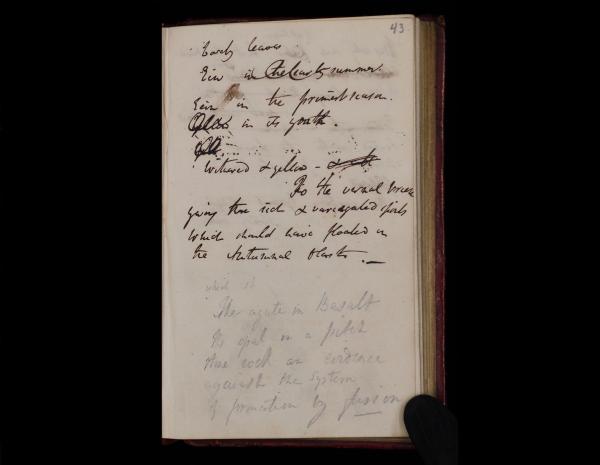 43
Early leaves
Een in the early summer.
Een in the primest season.
in its youth.
Withered & yellow -
To the vernal breeze
giving those rich & variegated spoils
Which should have floated on
the Autumnal blasts. —
which is
The agate in Basalt
The opal in a pitch
stone rock an evidence
against the system
of formation by fusion